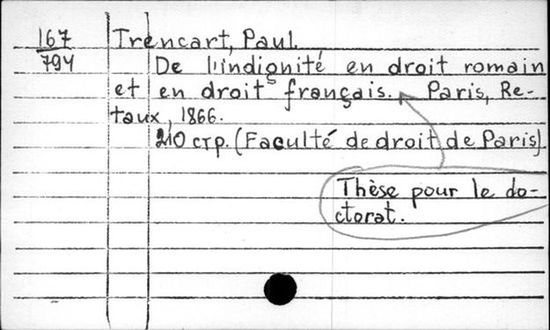 167 Trencart, Paul.
794 De l'indignité en droit romain
et en droit français. Paris, Re-
taux, 1866.
210 стр. (Faculté de droit de Paris).
Thèse pour le do-
ctorat.